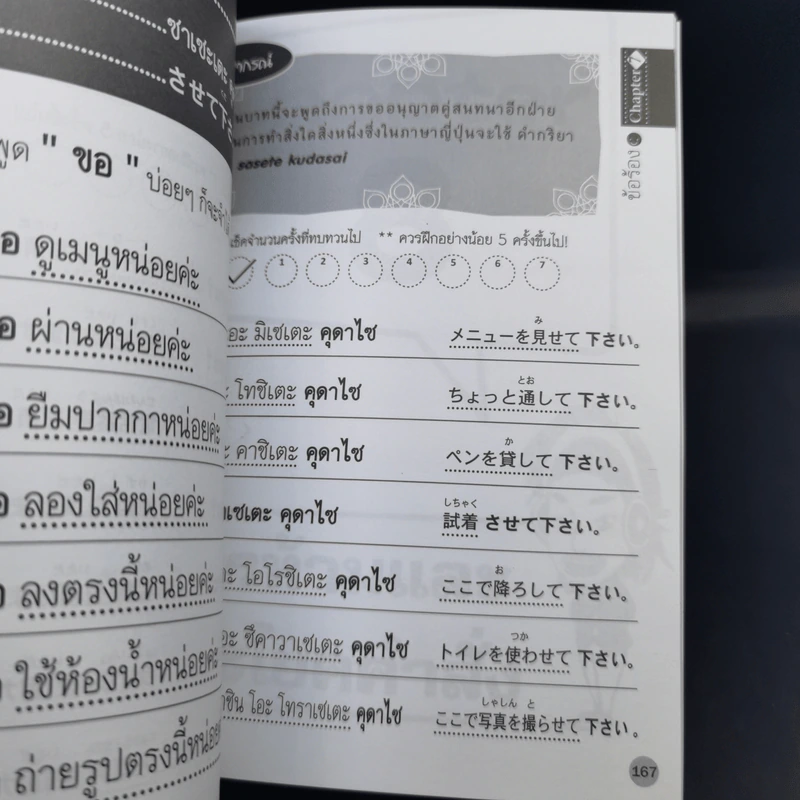 ซาเซะเตะ
させて下
พูด " ขอ " บ่อยๆ ก็จะจำ
ดูเมนูหน่อยค่ะ
ผ่านหน่อยค่ะ
ยืมปากกาหน่อยค่ะ
ลองใส่หน่อยค่ะ
ลงตรงนี้หน่อยค่ะ
ใช้ห้องน้ำหน่อยค่ะ
ถ่ายรูปตรงนี้หน่อย
Chapter 7
ข้อร้อง
นบาทนี้จะพูดถึงการขออนุญาตคู่สนทนาอีกฝ่าย
นการทำสิ่งใดสิ่งหนึ่งซึ่งในภาษาญี่ปุ่นจะใช้ คำกริยา
sasete kudasai
เช็คจำนวนครั้งที่ทบทวนไป ** ควรฝึกอย่างน้อย 5 ครั้งขึ้นไป!
1 2 3 4 5 6 7
โอะ มิเซเตะ คุดาไซ メニューを見せて 下さい。
み
โทชิเตะ คุดาไซ ちょっと通して 下さい。
とお
คาชิเตะ คุดาไซ ペンを貸して 下さい。
か
เซเตะ คุดาไซ 試着 させて下さい。
しちゃく
โอโรชิเตะ คุดาไซ ここで降ろして 下さい。
お
โอะ ซึคาวาเซเตะ คุดาไซ トイレを使わせて 下さい。
つか
ชิน โอะ โทราเซเตะ คุดาไซ ここで写真を撮らせて 下さい。
しゃしん と
167